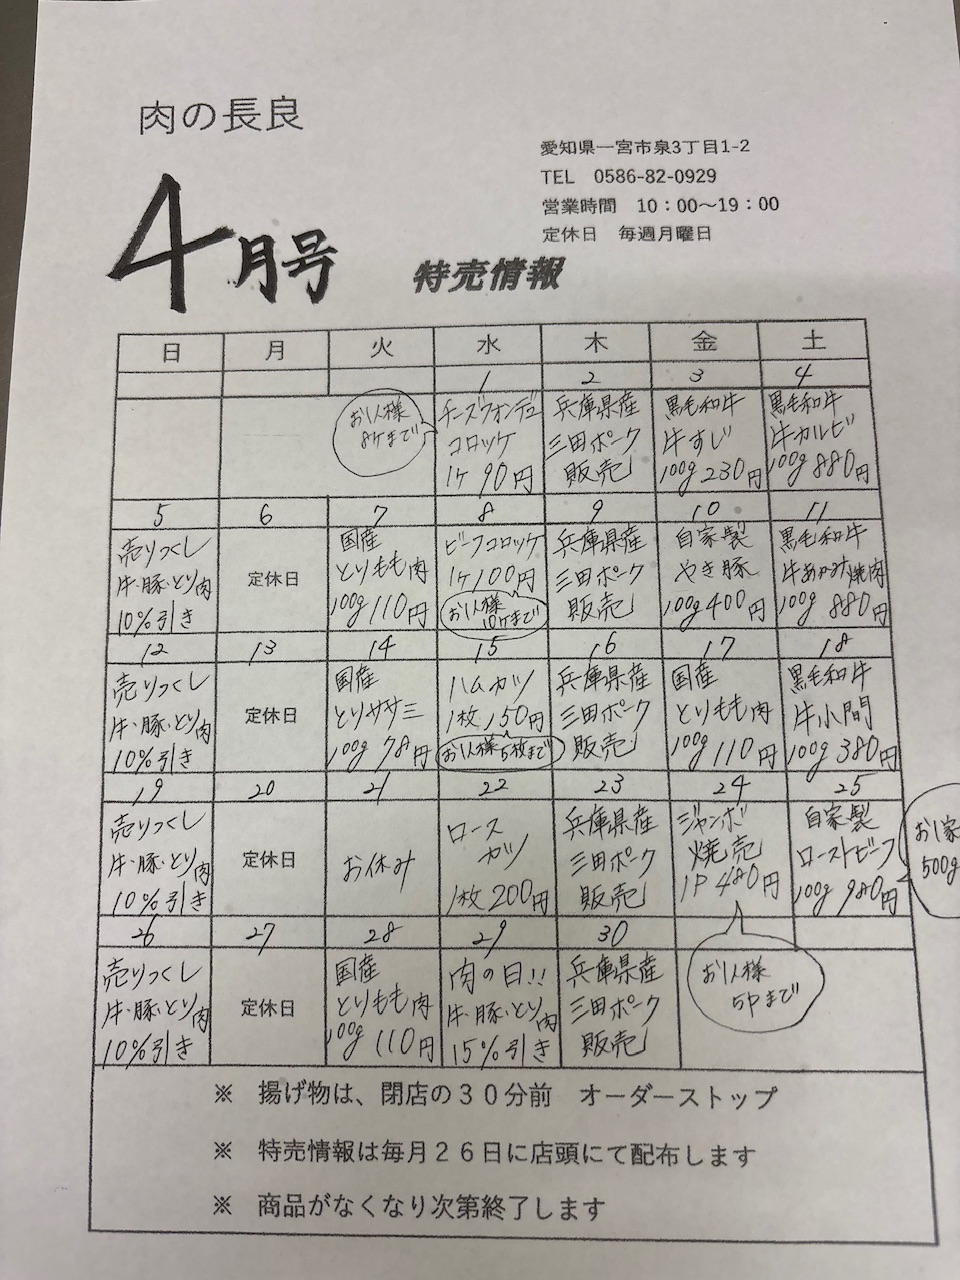 肉の長良
愛知県一宮市泉3丁目1-2
TEL 0586-82-0929
営業時間 10：00～19：00
定休日 毎週月曜日
4月号
特売情報
日 月 火 水 木 金 土
1 2 3 4
お1人様
8ケまで
チーズフォンデュ
コロッケ
1ケ90円
兵庫県産
三田ポーク
販売
黒毛和牛
牛すじ
100g230円
黒毛和牛
牛カルビ
100g880円
5 6 7 8 9 10 11
売りつくし
牛・豚・とり肉
10％引き
定休日
国産
とりもも肉
100g110円
ビーフコロッケ
1ケ100円
お1人様
10ケまで
兵庫県産
三田ポーク
販売
自家製
やき豚
100g400円
黒毛和牛
牛あかみ焼肉
100g 880円
12 13 14 15 16 17 18
売りつくし
牛・豚・とり肉
10％引き
定休日
国産
とりササミ
100g 78円
ハムカツ
1枚150円
お1人様5枚まで
兵庫県産
三田ポーク
販売
国産
とりもも肉
100g110円
黒毛和牛
牛小間
100g380円
19 20 21 22 23 24 25
売りつくし
牛・豚・とり肉
10％引き
定休日
お休み
ロース
カツ
1枚200円
兵庫県産
三田ポーク
販売
ジャンボ
焼売
1P480円
お1人様
5Pまで
自家製
ローストビーフ
100g980円
お1家
500g
26 27 28 29 30
売りつくし
牛・豚・とり肉
10％引き
定休日
国産
とりもも肉
100g110円
肉の日!!
牛・豚・とり肉
15％引き
兵庫県産
三田ポーク
販売
※ 揚げ物は、閉店の30分前 オーダーストップ
※ 特売情報は毎月26日に店頭にて配布します
※ 商品がなくなり次第終了します